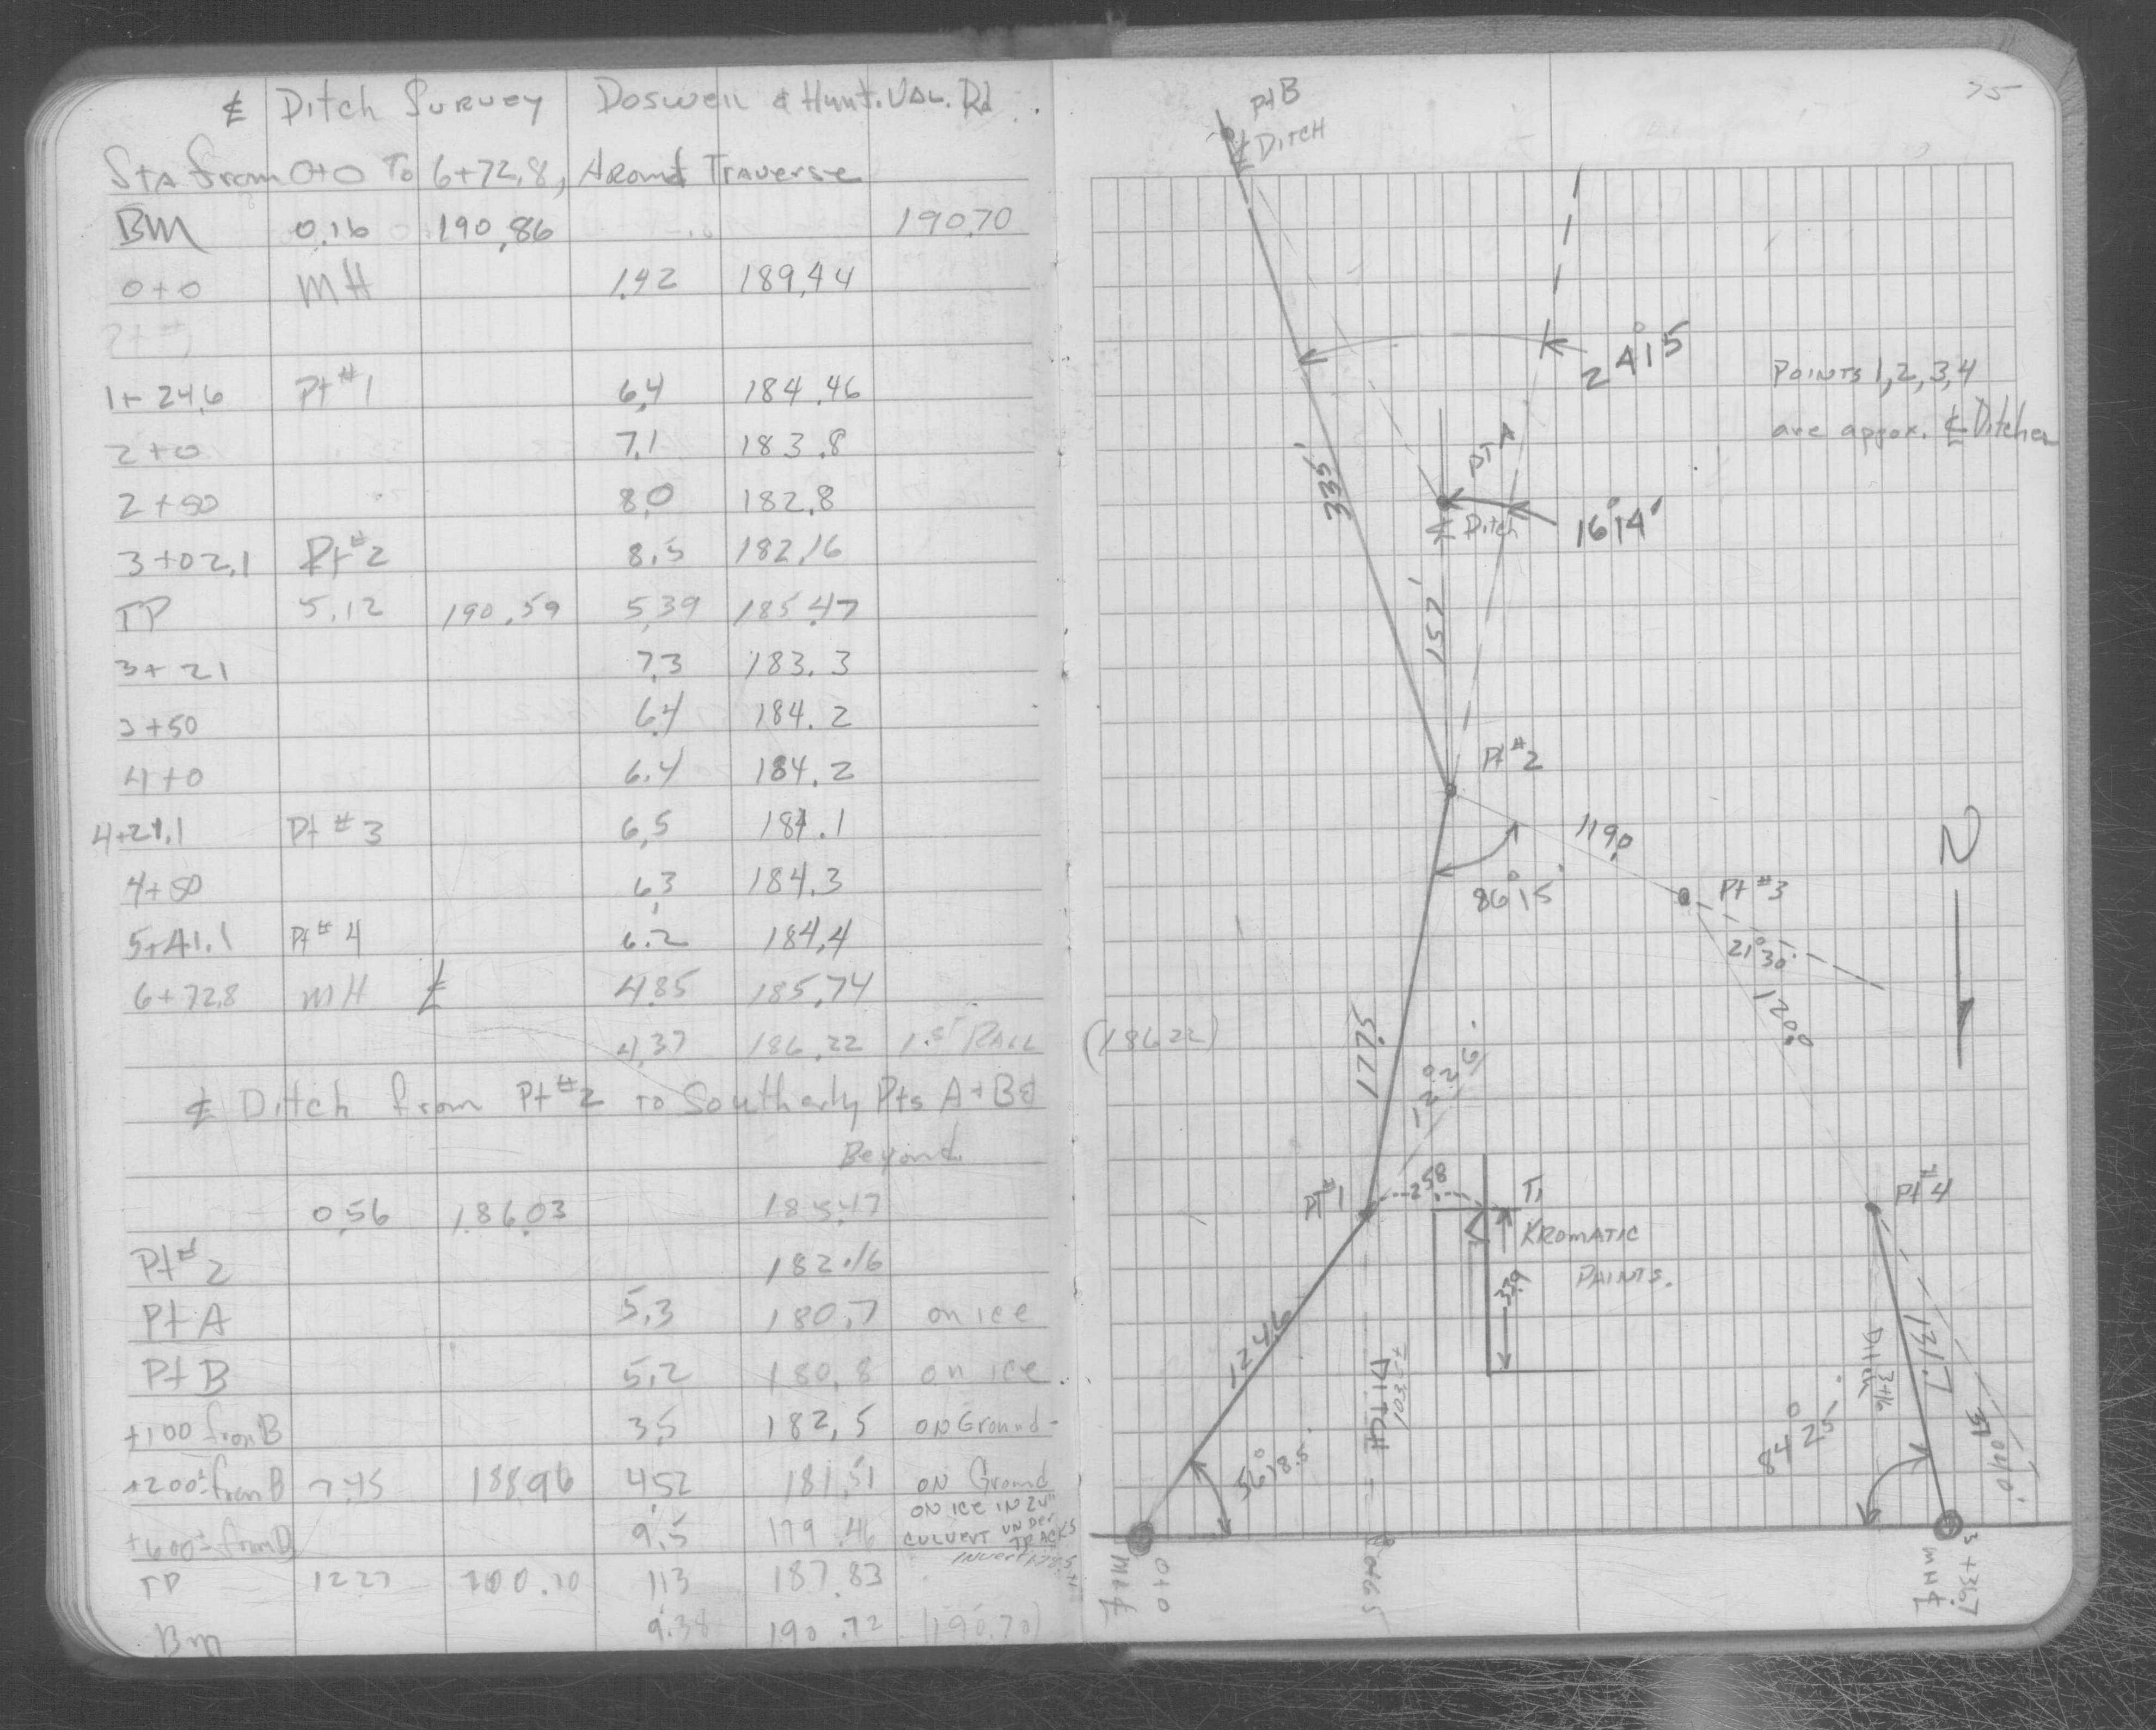 ℄ Ditch Survey Doswell & Hunt. Val. Rd.
Sta from 0+0 To 6+72.8, Around Traverse
BM 0.16 190.86 190.70
0+0 MH 1.42 189.44
1+24.6 Pt #1 6.4 184.46
2+0 7.1 183.8
2+50 8.0 182.8
3+02.1 Pt #2 8.5 182.16
TP 5.12 190.59 5.39 185.47
3+21 7.3 183.3
3+50 6.4 184.2
4+0 6.4 184.2
4+21.1 Pt #3 6.5 184.1
4+50 6.3 184.3
5+41.1 Pt #4 6.2 184.4
6+72.8 MH ℄ 4.85 185.74
4.37 186.22 1st RAIL (186.22)
℄ Ditch from Pt #2 to Southerly Pts A + B &
Beyond
0.56 186.03 185.47
Pt #2 182.16
Pt A 5.3 180.7 on ice
Pt B 5.2 180.8 on ice
+100 from B 3.5 182.5 ON Ground
+200± from B 7.45 188.96 4.52 181.51 ON Ground
+600± from B 9.5 179.46 ON ICE IN 24" CULVERT UNDER TRACKS
TP 12.27 200.10 1.13 187.83
BM 9.38 190.72 (190.70)
75
Pt B
℄ DITCH
24°15'
POINTS 1, 2, 3, 4
are approx. ℄ Ditches
335'
Pt A
℄ Ditch
16°14'
152'
Pt #2
119.0
86°15'
Pt #3
21°30'
120.0
N
177.5
Pt #1
25.8
KROMATIC
PAINTS.
33.9
Pt #4
124.6
DITCH
56°18.5'
Ditch
131.7
84°25'
MH ℄
0+0
MH ℄
5+36.7